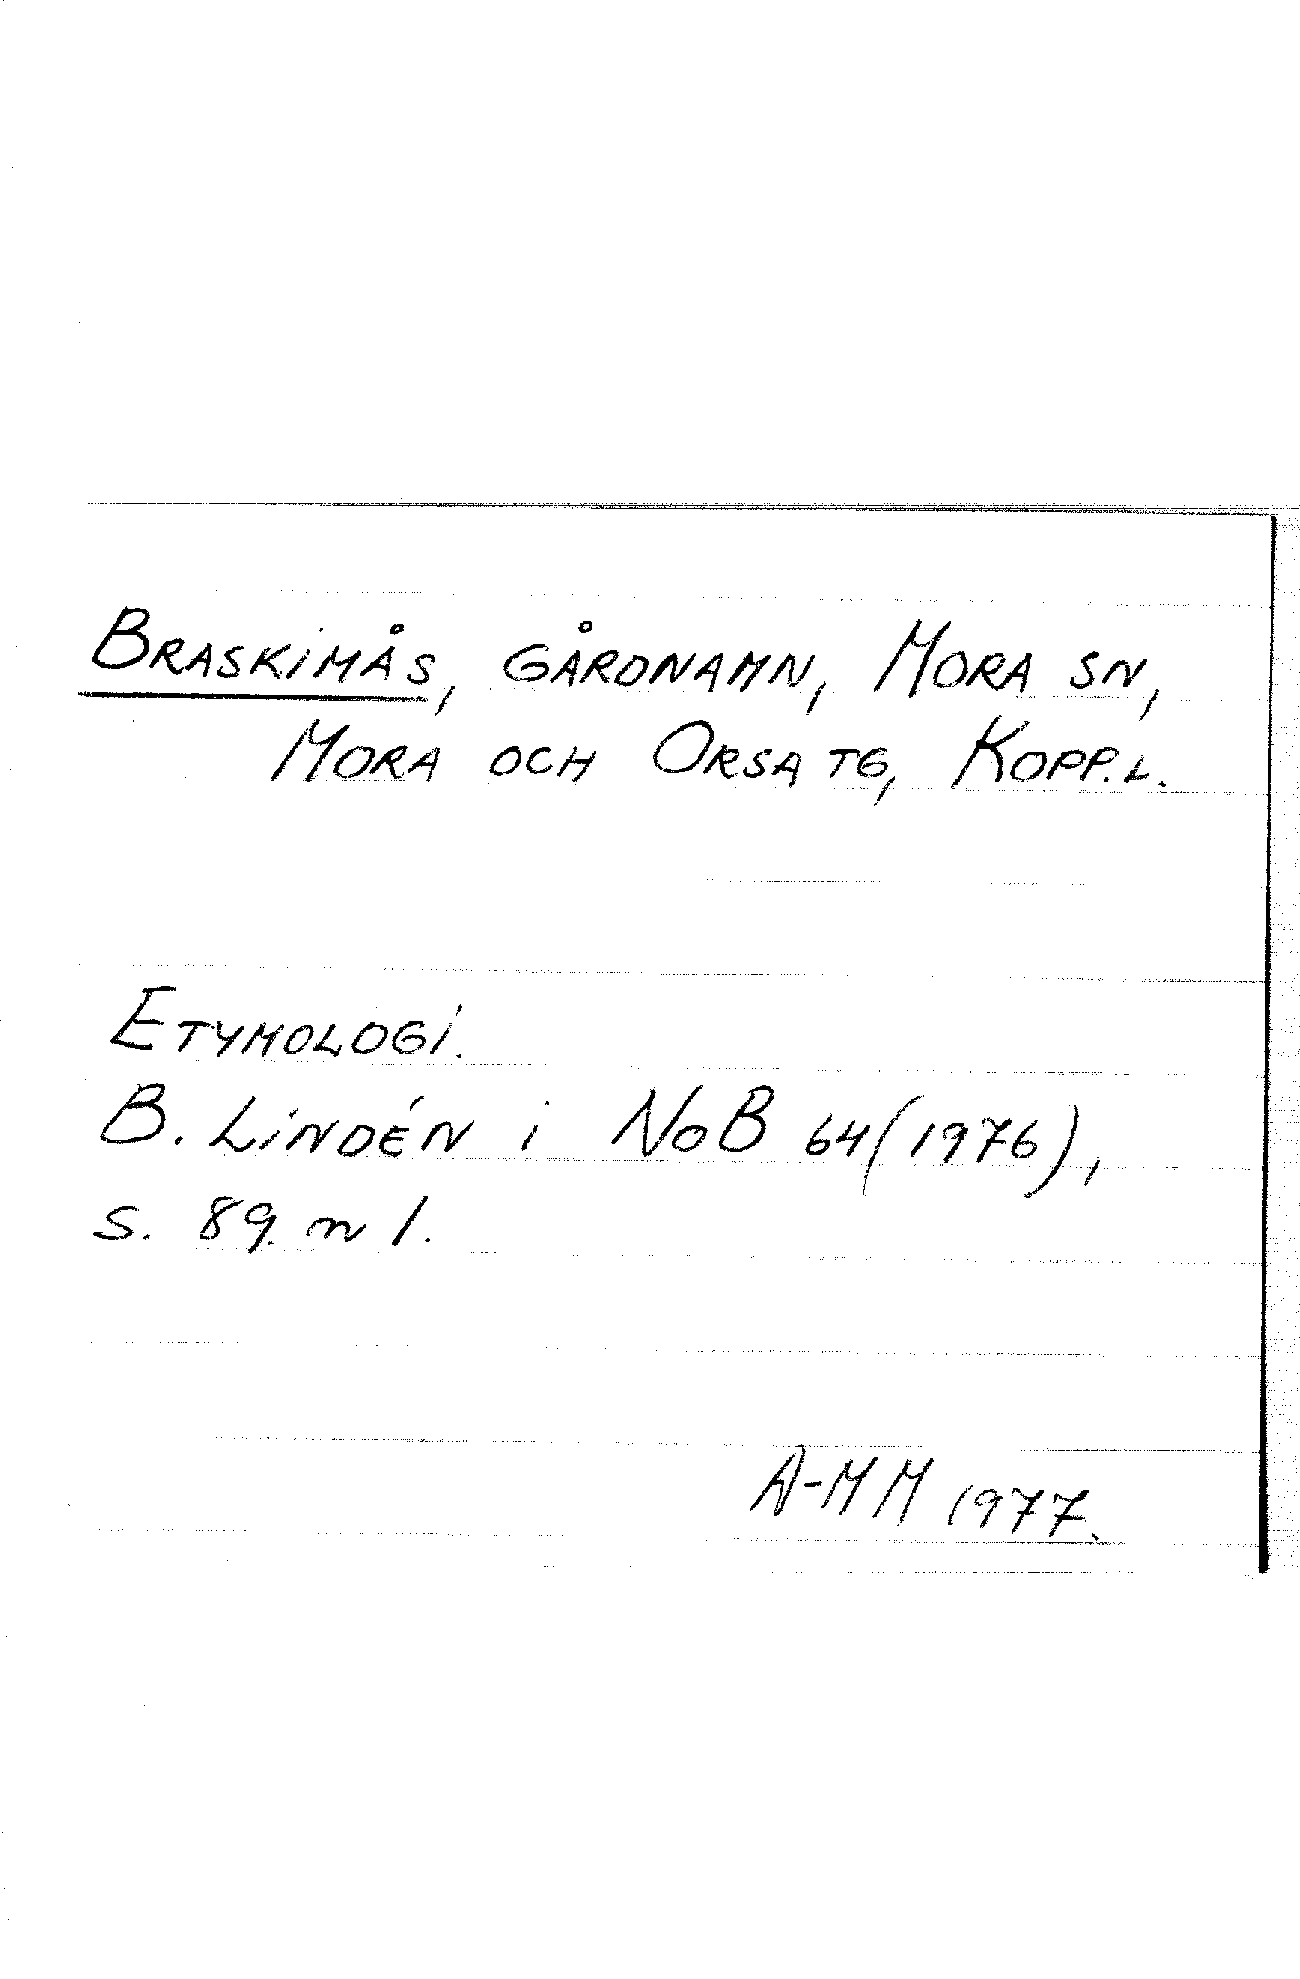 BRASKIMÅS, GÅRDNAMN, MORA SN,
MORA OCH ORSA TG, KOPP.L.
ETYMOLOGI.
B. LINDÉN i NoB 64(1976),
s. 89 n 1.
A-MM 1977.